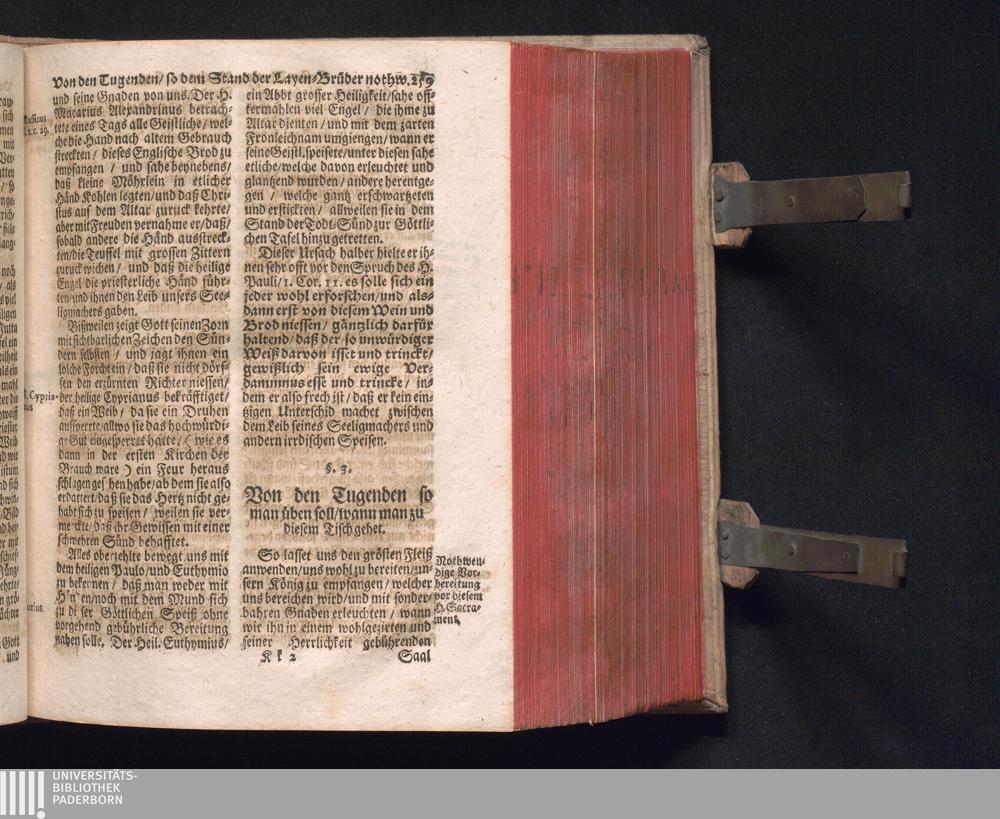 Von den Tugenden/ so dem Stand der Layen-Brüder nothw. 259
und seine Gnaden von uns. Der H.
Macarius Alexandrinus betrach-
tete eines Tags alle Geistliche/ wel-
che die Hand nach altem Gebrauch
streckten / dieses Englische Brod zu
empfangen / und sahe beynebens/
daß kleine Möhrlein in etlicher
Händ Kohlen legten/ und daß Chri-
stus auf dem Altar zuruck kehrte/
aber mit Freuden vernahme er/ daß/
sobald andere die Händ ausstreck-
ten/ die Teuffel mit grossen Zittern
zuruck wichen/ und daß die heilige
Engel die priesterliche Händ führ-
ten/ und ihnen den Leib unsers See-
ligmachers gaben.
Bißweilen zeigt Gott seinen Zorn
mit sichtbarlichen Zeichen den Sün-
dern selbsten / und jagt ihnen ein
solche Forcht ein/ daß sie nicht dörf-
fen den erzürnten Richter niessen/
der heilige Cyprianus bekräfftiget/
daß ein Weib/ da sie ein Druhen
aufsperrte/ allwo sie das hochwürdi-
ge Gut eingesperret hatte/ ( wie es
dann in der ersten Kirchen der
Brauch ware ) ein Feur heraus
schlagen gesehen habe/ ab dem sie also
erdattert/ daß sie das Hertz nicht ge-
habt sich zu speisen/ weilen sie ver-
merckte/ daß ihr Gewissen mit einer
schwehren Sünd behafftet.
Alles oberzehlte bewegt uns mit
dem heiligen Paulo/ und Euthymio
zu bekennen / daß man weder mit
Händen/ noch mit dem Mund sich
zu diser Göttlichen Speiß ohne
vorgehend gebührliche Bereitung
nahen solle. Der Heil. Euthymius/
Cypria-
ein Abbt grosser Heiligkeit/ sahe off-
termahlen viel Engel / die ihme zu
Altar dienten/ und mit dem zarten
Fronleichnam umgiengen/ wann er
seine Geistl. speisete/ unter diesen sahe
etliche/ welche davon erleuchtet und
glantzend wurden/ andere herentge-
gen / welche gantz erschwartzeten
und erstickten / allweilen sie in dem
Stand der Todt-Sünd zur Göttli-
chen Tafel hinzu getretten.
Dieser Ursach halber hielte er ih-
nen sehr offt vor den Spruch des H.
Pauli/ 1. Cor. 11. es solle sich ein
jeder wohl erforschen/ und als-
dann erst von diesem Wein und
Brod niessen/ gäntzlich darfür
haltend/ daß der so unwürdiger
Weiß darvon isset und trincke/
gewißlich sein ewige Ver-
dammnus esse und trincke/ in-
dem er also frech ist/ daß er kein ein-
tzigen Unterschid machet zwischen
dem Leib seines Seeligmachers und
andern irrdischen Speisen.
§. 3.
Von den Tugenden so
man üben soll/ wann man zu
diesem Tisch gehet.
So lasset uns den grösten Fleiß
anwenden/ uns wohl zu bereiten/ un-
sern König zu empfangen/ welcher
uns bereichen wird/ und mit sonder-
bahren Gnaden erleuchten / wann
wir ihn in einem wohlgezierten und
seiner Herrlichkeit gebührenden
Kk 2 Saal
Nothwen-
dige Vor-
bereitung
vor diesem
H. Sacra-
ment.
UNIVERSITÄTS-
BIBLIOTHEK
PADERBORN